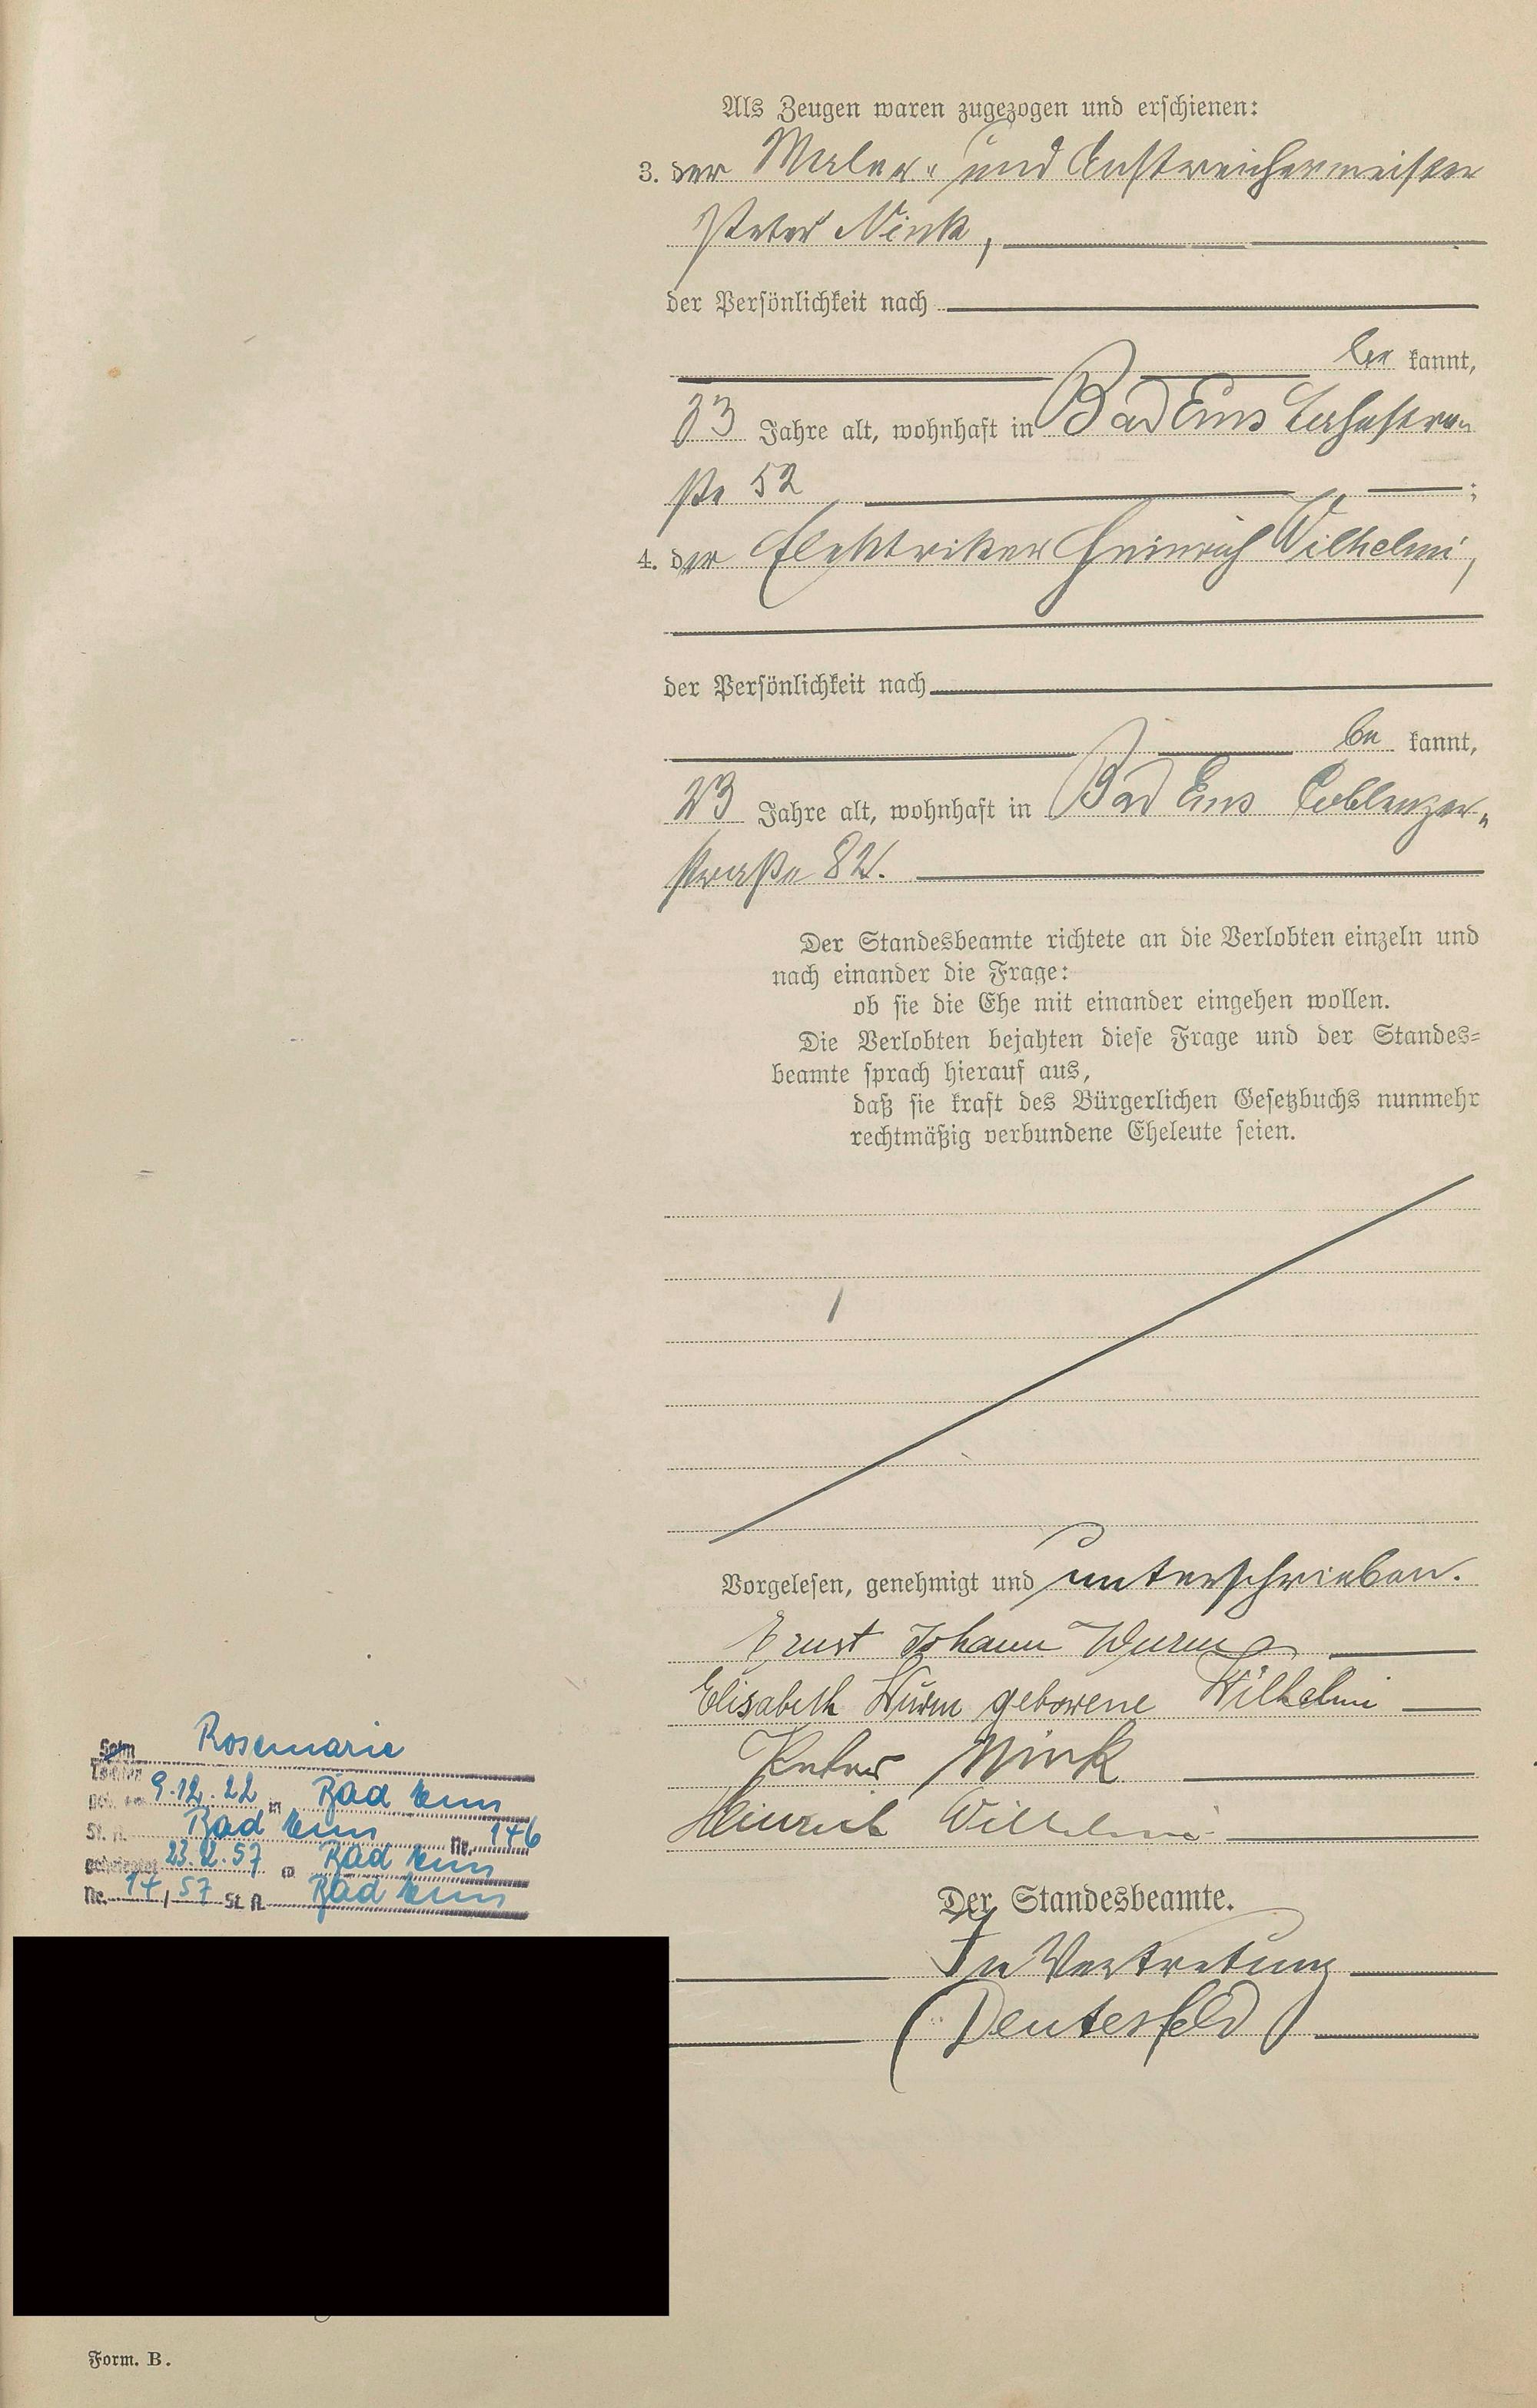 Als Zeugen waren zugezogen und erschienen:
3. der Maler- und Anstreichermeister
Peter Nink,
der Persönlichkeit nach
be kannt,
33 Jahre alt, wohnhaft in Bad Ems Lahnstra-
ße 52 ;
4. der Elektriker Heinrich Wilhelmi,
der Persönlichkeit nach
be kannt,
23 Jahre alt, wohnhaft in Bad Ems Coblenzer-
straße 82.
Der Standesbeamte richtete an die Verlobten einzeln und
nach einander die Frage:
ob sie die Ehe mit einander eingehen wollen.
Die Verlobten bejahten diese Frage und der Standes-
beamte sprach hierauf aus,
daß sie kraft des Bürgerlichen Gesetzbuchs nunmehr
rechtmäßig verbundene Eheleute seien.
Vorgelesen, genehmigt und unterschrieben.
Ernst Johann Wurm
Elisabeth Wurm geborene Wilhelmi
Peter Nink
Heinrich Wilhelmi
Der Standesbeamte.
In Vertretung
Deutesfeld
Sohn Rosemarie
Tochter
geb. am 9.12.22 in Bad Ems
St. A. Bad Ems Nr. 146
geheiratet 23.2.57 in Bad Ems
Nr. 17/57 St. A. Bad Ems
Form. B.